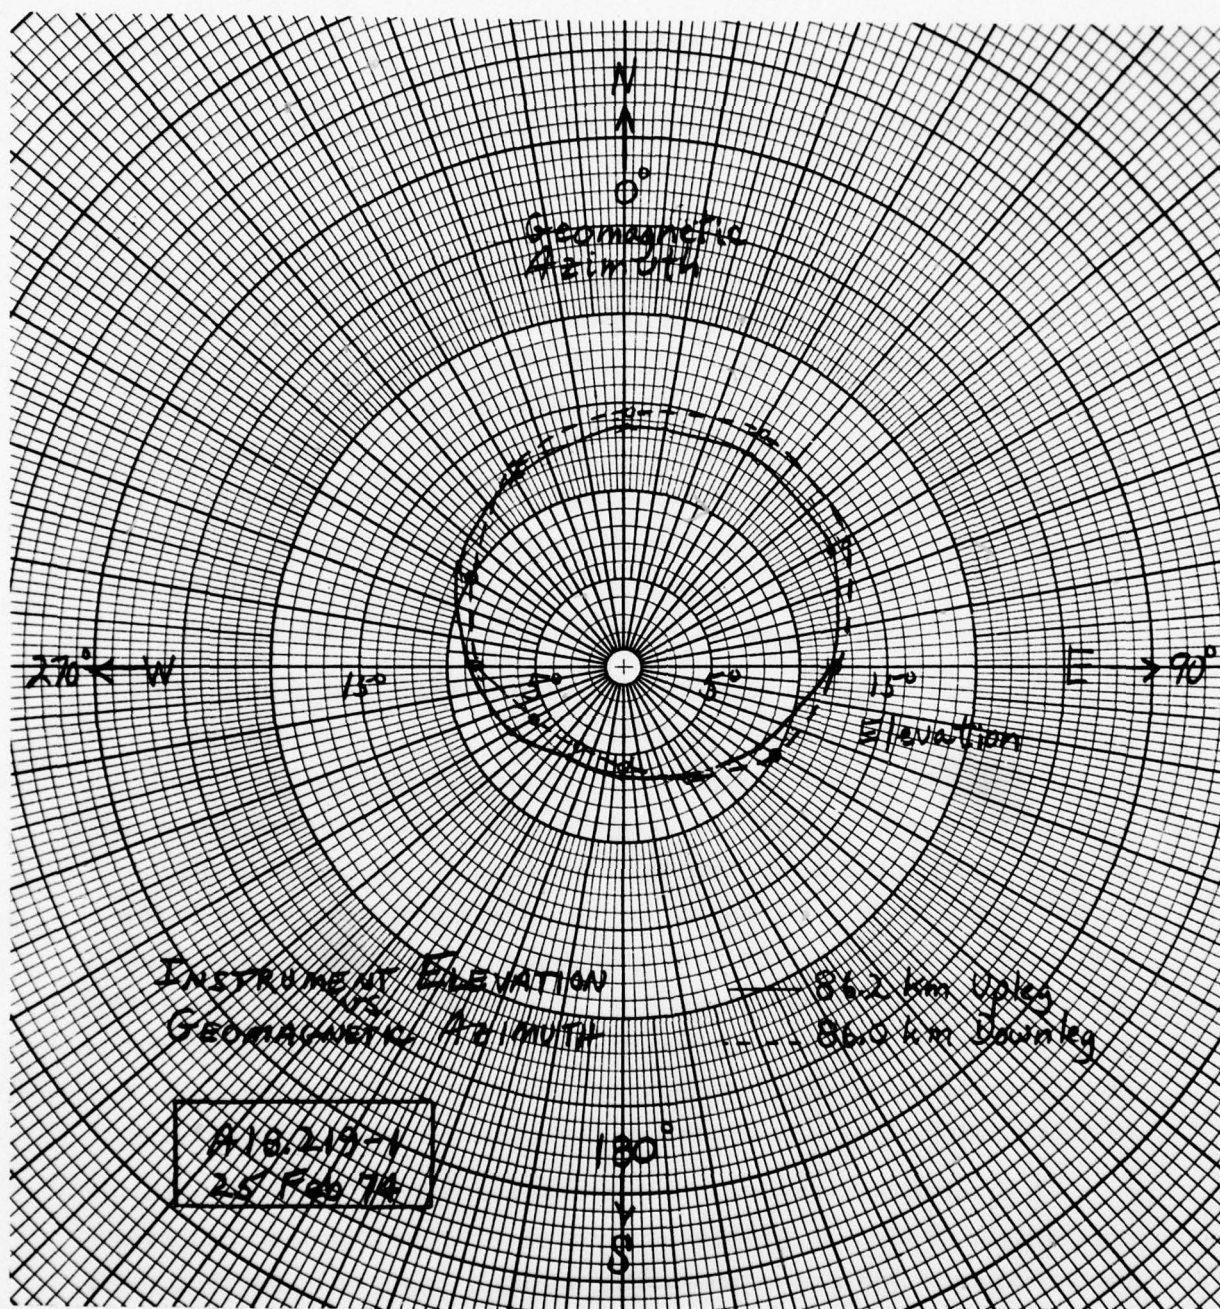 N
0°
Geomagnetic
Azimuth
270° ← W
15°
5°
15°
E → 90°
Elevation
INSTRUMENT ELEVATION
VS.
GEOMAGNETIC AZIMUTH
86.2 km Upleg
86.0 km Downleg
A18.219-1
25 Feb 74
180°
S